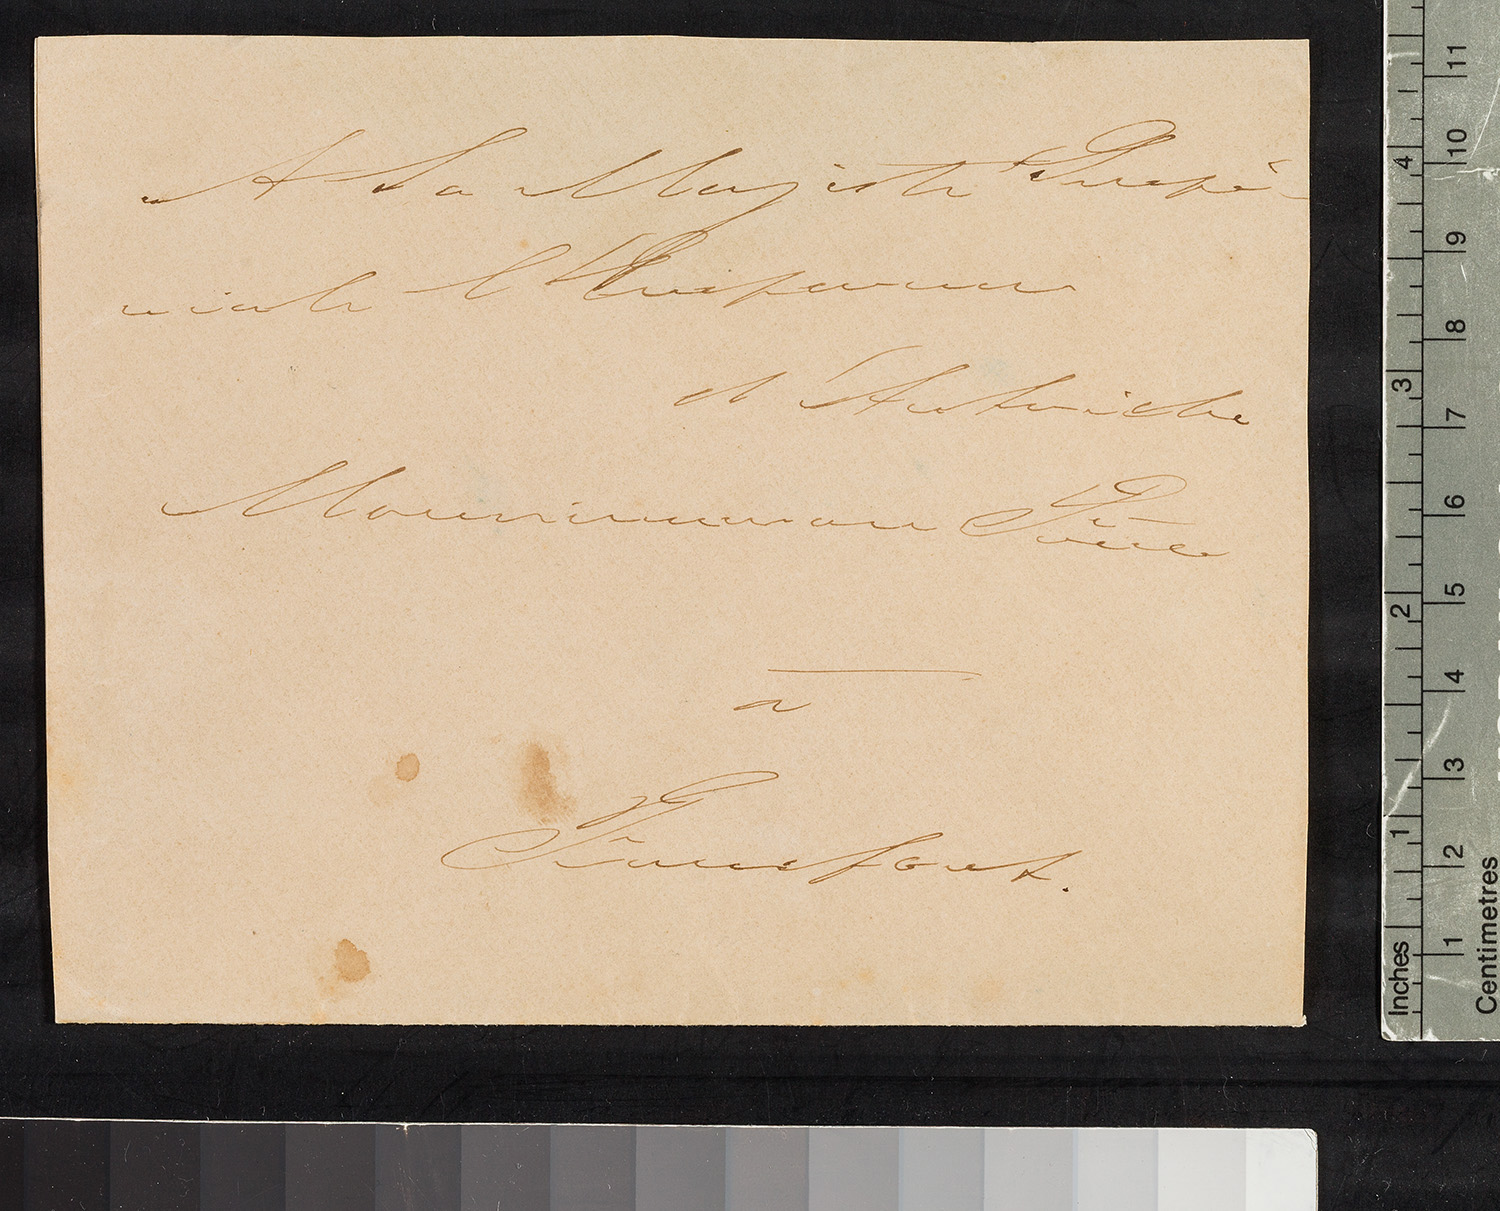 A Sa Majesté Impé-
riale l'Empereur
d'Autriche
Monsieur mon Frère
à
Francfort.
Inches 1 2 3 4
Centimetres 1 2 3 4 5 6 7 8 9 10 11